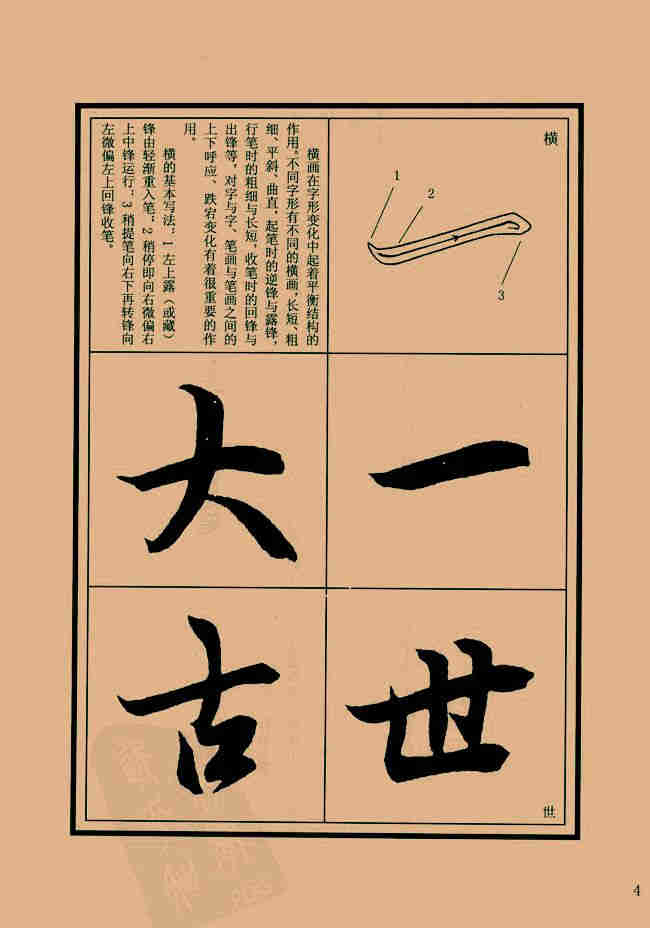 横
1
2
3
横画在字形变化中起着平衡结构的
作用。不同字形有不同的横画，长短、粗
细、平斜、曲直，起笔时的逆锋与露锋，
行笔时的粗细与长短，收笔时的回锋与
出锋等，对字与字、笔画与笔画之间的
上下呼应、跌宕变化有着很重要的作
用。
横的基本写法：1 左上露（或藏）
锋由轻渐重入笔；2 稍停即向右微偏右
上中锋运行；3 稍提笔向右下再转锋向
左微偏左上回锋收笔。
一
大
世
古
世
4